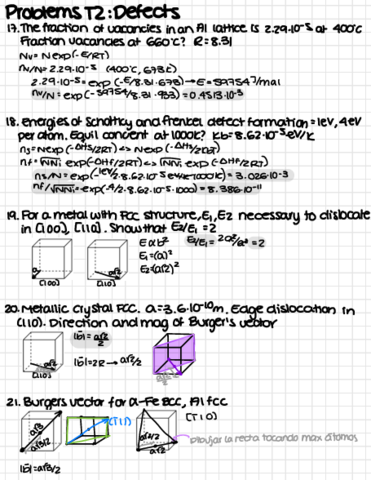 Problems T2: Defects
17. The fraction of vacancies in an Al lattice is 2.29·10⁻⁵ at 400ºC
Fraction vacancies at 660ºC? R=8.31
Nv = N exp(-E/RT)
Nv/N = 2.29·10⁻⁵ (400ºC, 673K)
2.29·10⁻⁵ = exp(-E/8.31·673) → E = 59754 J/mol
Nv/N = exp(-59754/8.31·933) = 0.4513·10⁻³
18. Energies of Schottky and Frenkel defect formation = 1eV, 4eV
per atom. Equil concent at 1000K? kb = 8.62·10⁻⁵ eV/K
ns = N exp(-ΔHs/2RT) ↔ N exp(-ΔHs/2KT)
nf = √NNi exp(-ΔHf/2RT) ↔ √NNi exp(-ΔHf/2KT)
ns/N = exp(-1eV/2·8.62·10⁻⁵ eV/K·1000K) = 3.026·10⁻³
nf/√NNi = exp(-4/2·8.62·10⁻⁵·1000) = 8.386·10⁻¹¹
19. For a metal with FCC structure, E1, E2 necessary to dislocate
in [100], [110]. Show that E2/E1 = 2
E α b²
E2/E1 = 2a²/a² = 2
E1 = (a)²
E2 = (a√2)²
a
a√2
[100]
[110]
20. Metallic crystal FCC. a = 3.6·10⁻¹⁰m. Edge dislocation in
[110]. Direction and mag of Burger's vector
|b| = a√2/2
|b| = 2R → a√2/2
a√2
[110]
21. Burgers vector for α-Fe BCC, Al fcc
a√3
a√3/2
(T11)
a√2/2
a√2
[T10]
dibujar la recta tocando max átomos
|b| = a√3/2